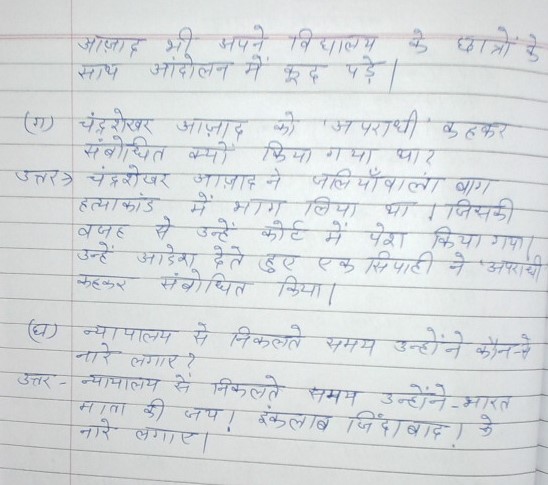 आज़ाद भी अपने विद्यालय के छात्रों के
साथ आंदोलन में कूद पड़े।
(ग) चंद्रशेखर आज़ाद को 'अपराधी' कहकर
संबोधित क्यों किया गया था?
उत्तर→ चंद्रशेखर आज़ाद ने जलियाँवाला बाग
हत्याकांड में भाग लिया था। जिसकी
वजह से उन्हें कोर्ट में पेश किया गया।
उन्हें आदेश देते हुए एक सिपाही ने 'अपराधी
कहकर संबोधित किया।
(घ) न्यायालय से निकलते समय उन्होंने कौन-से
नारे लगाए?
उत्तर - न्यायालय से निकलते समय उन्होंने - भारत
माता की जय! इंकलाब जिंदाबाद! के
नारे लगाए।